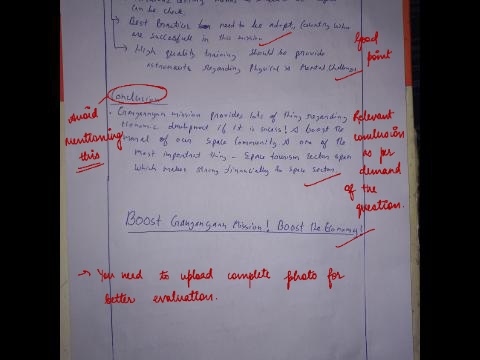 can be check.
→ Best Practices need to be adopt, (country who
are successfull in this mission
→ High quality training should be provide
astronauts Regarding Physical & Mental Challenge
Good
point
Conclusion
Avoid
mentioning
this
• Gaganyaan mission provides lots of thing regarding
Economic development if it is sucess! A boost the
moral of our space community & one of the
most important thing - Space tourism sector open
which makes strong financially the space sector.
Relevant
conclusion
as per
demand
of the
question.
BOOST Gangangann Mission! BOOST the Economy!
→ You need to upload complete photo for
better evaluation.